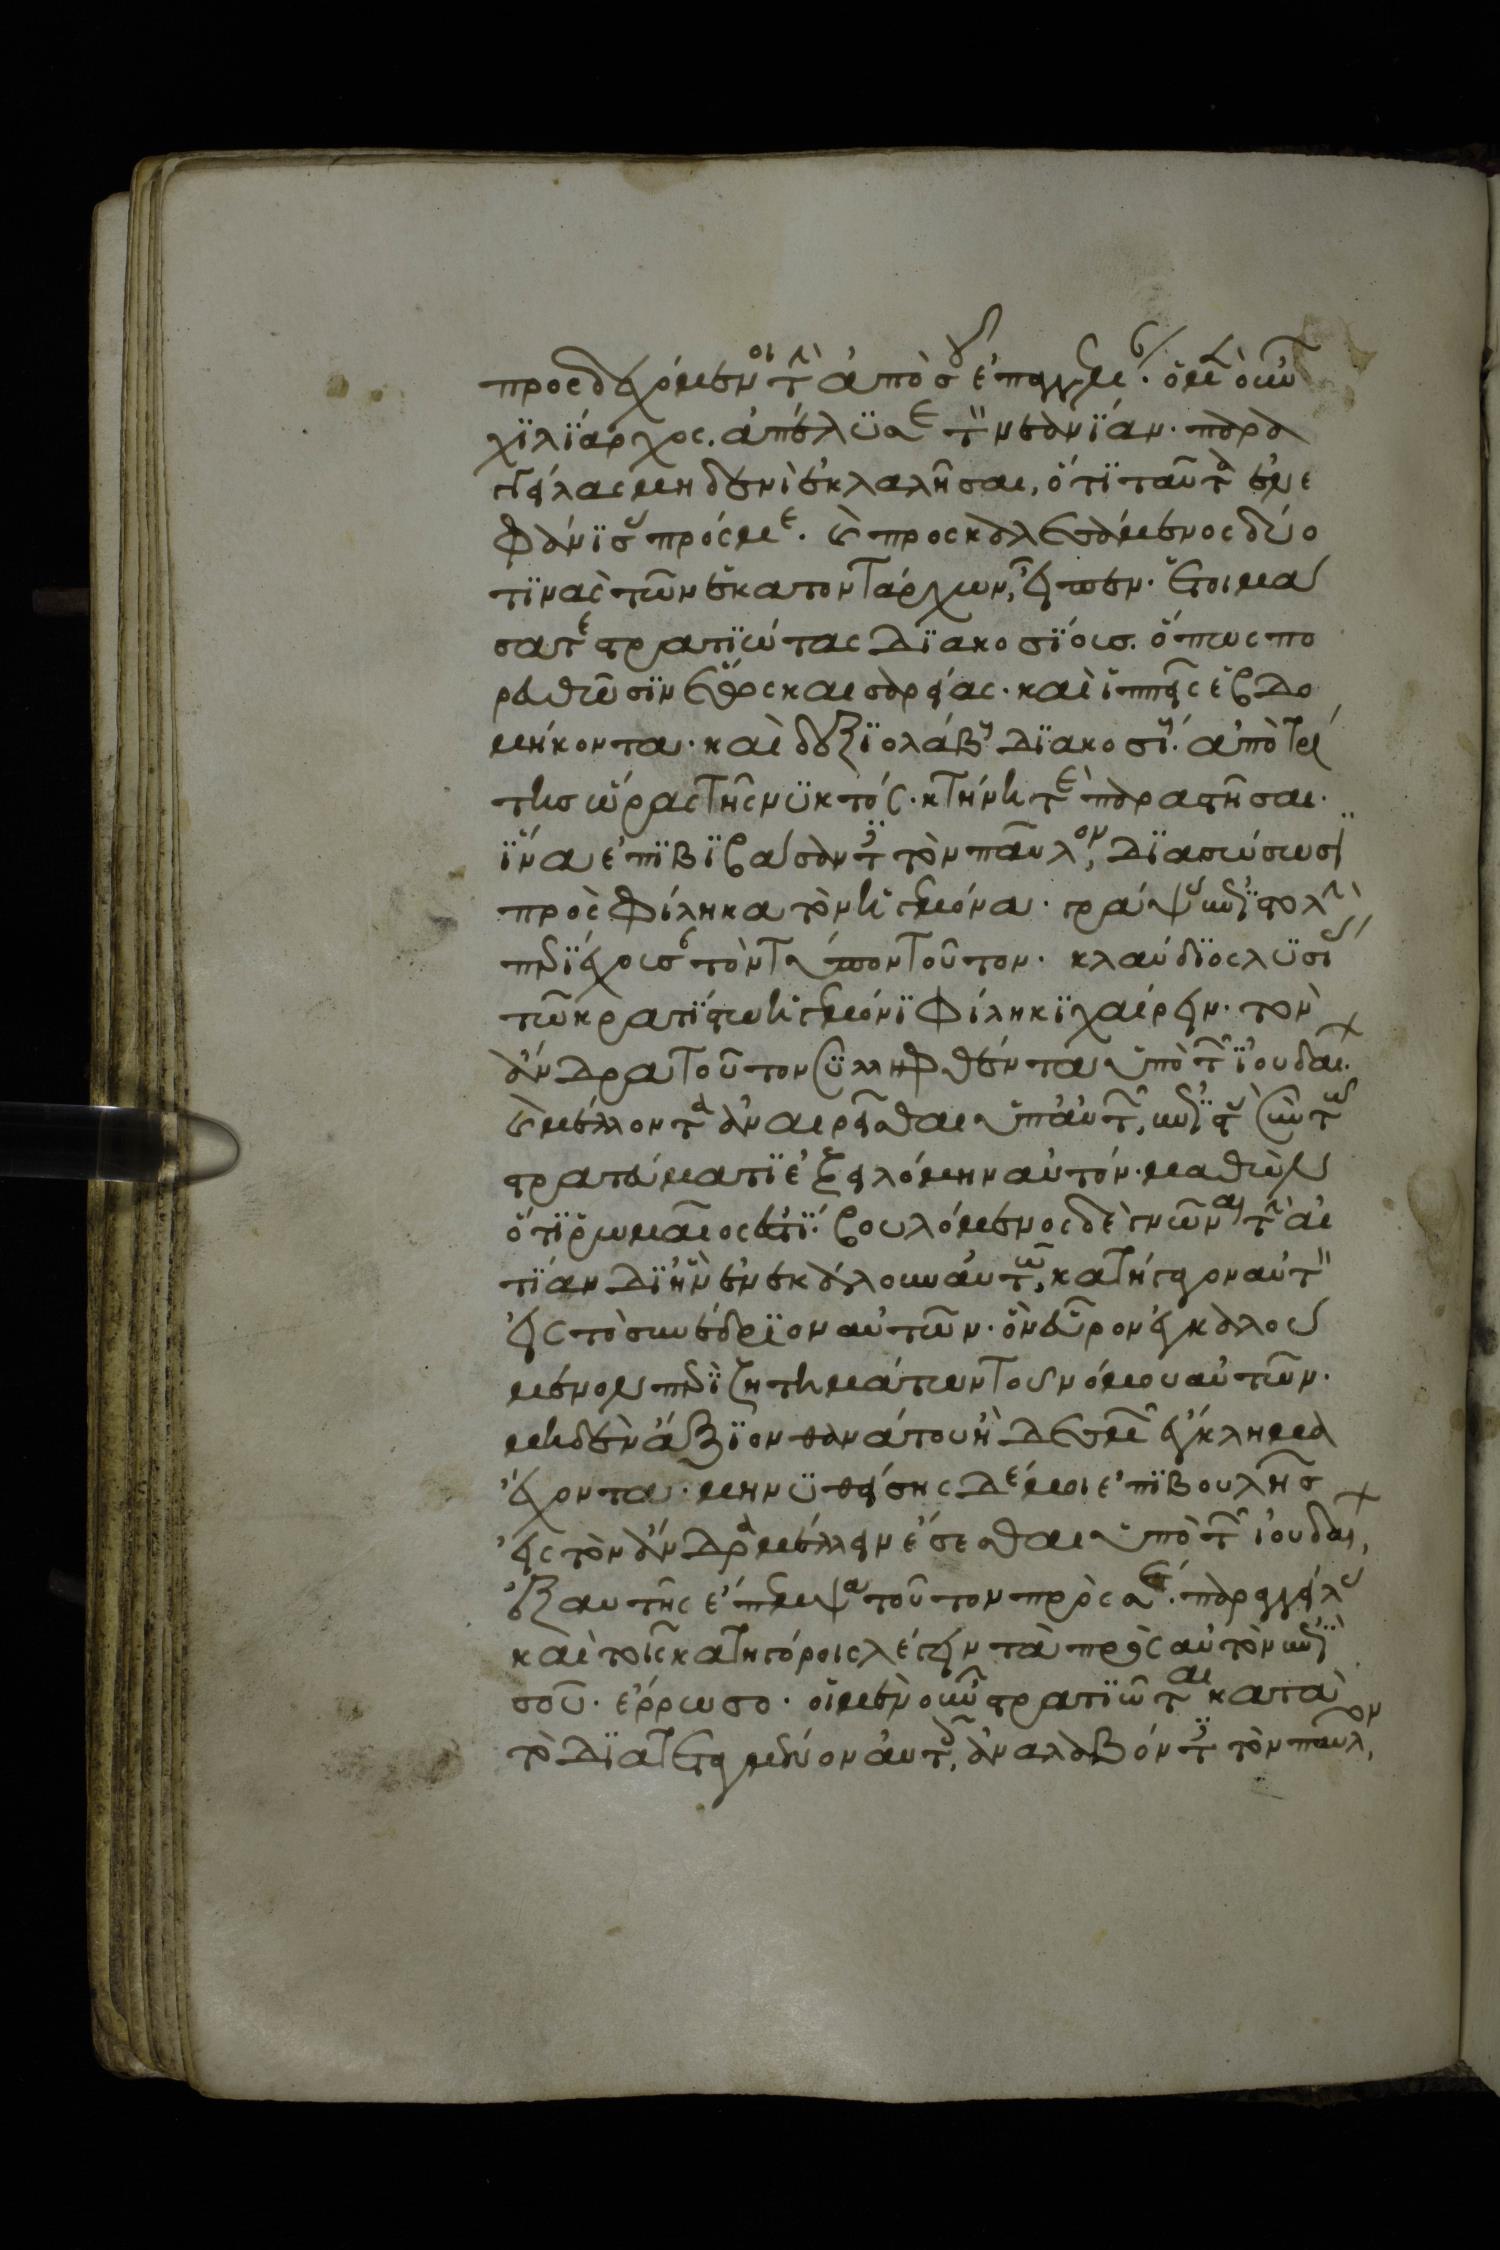 προσδεχόμενοι τὴν ἀπὸ σοῦ ἐπαγγελίαν. ὁ μὲν οὖν
χιλίαρχος. ἀπέλυσε τὸν νεανίαν. παρα
γγείλας μηδενὶ ἐκλαλῆσαι, ὅτι ταῦτα ἐνε
φάνισας πρός με. καὶ προσκαλεσάμενος δύο
τινὰς τῶν ἑκατοντάρχων, εἶπεν. ἑτοιμά
σατε στρατιώτας διακοσίους. ὅπως πο
ρευθῶσιν ἕως καισαρείας. καὶ ἱππεῖς ἑβδο
μήκοντα. καὶ δεξιολάβους διακοσίους. ἀπὸ τρί
της ὥρας τῆς νυκτός. κτήνη τε παραστῆσαι.
ἵνα ἐπιβιβάσαντες τὸν παῦλον, διασώσωσι
πρὸς φίληκα τὸν ἡγεμόνα. γράψας ἐπιστολὴν
περιέχουσαν τὸν τύπον τοῦτον. κλαύδιος λυσίας
τῷ κρατίστῳ ἡγεμόνι φίληκι χαίρειν. τὸν
ἄνδρα τοῦτον συλληφθέντα ὑπὸ τῶν ἰουδαίων.
καὶ μέλλοντα ἀναιρεῖσθαι ὑπ' αὐτῶν, ἐπιστὰς σὺν τῷ
στρατεύματι ἐξειλόμην αὐτόν. μαθὼν
ὅτι ῥωμαῖος ἐστί. βουλόμενος δὲ γνῶναι τὴν αἰ
τίαν δι' ἣν ἐνεκάλουν αὐτῷ, κατήγαγον αὐτὸν
εἰς τὸ συνέδριον αὐτῶν. ὃν εὗρον ἐγκαλού
μενον περὶ ζητημάτων τοῦ νόμου αὐτῶν.
μηδὲν ἄξιον θανάτου ἢ δεσμῶν ἔγκλημα
ἔχοντα. μηνυθείσης δέ μοι ἐπιβουλῆς
εἰς τὸν ἄνδρα μέλλειν ἔσεσθαι ὑπὸ τῶν ἰουδαίων,
ἐξαυτῆς ἔπεμψα τοῦτον πρός σέ. παραγγείλας
καὶ τοῖς κατηγόροις λέγειν τὰ πρὸς αὐτὸν ἐπὶ
σοῦ. ἔρρωσο. οἱ μὲν οὖν στρατιῶται κατὰ
τὸ διατεταγμένον αὐτοῖς, ἀναλαβόντες τὸν παῦλον,